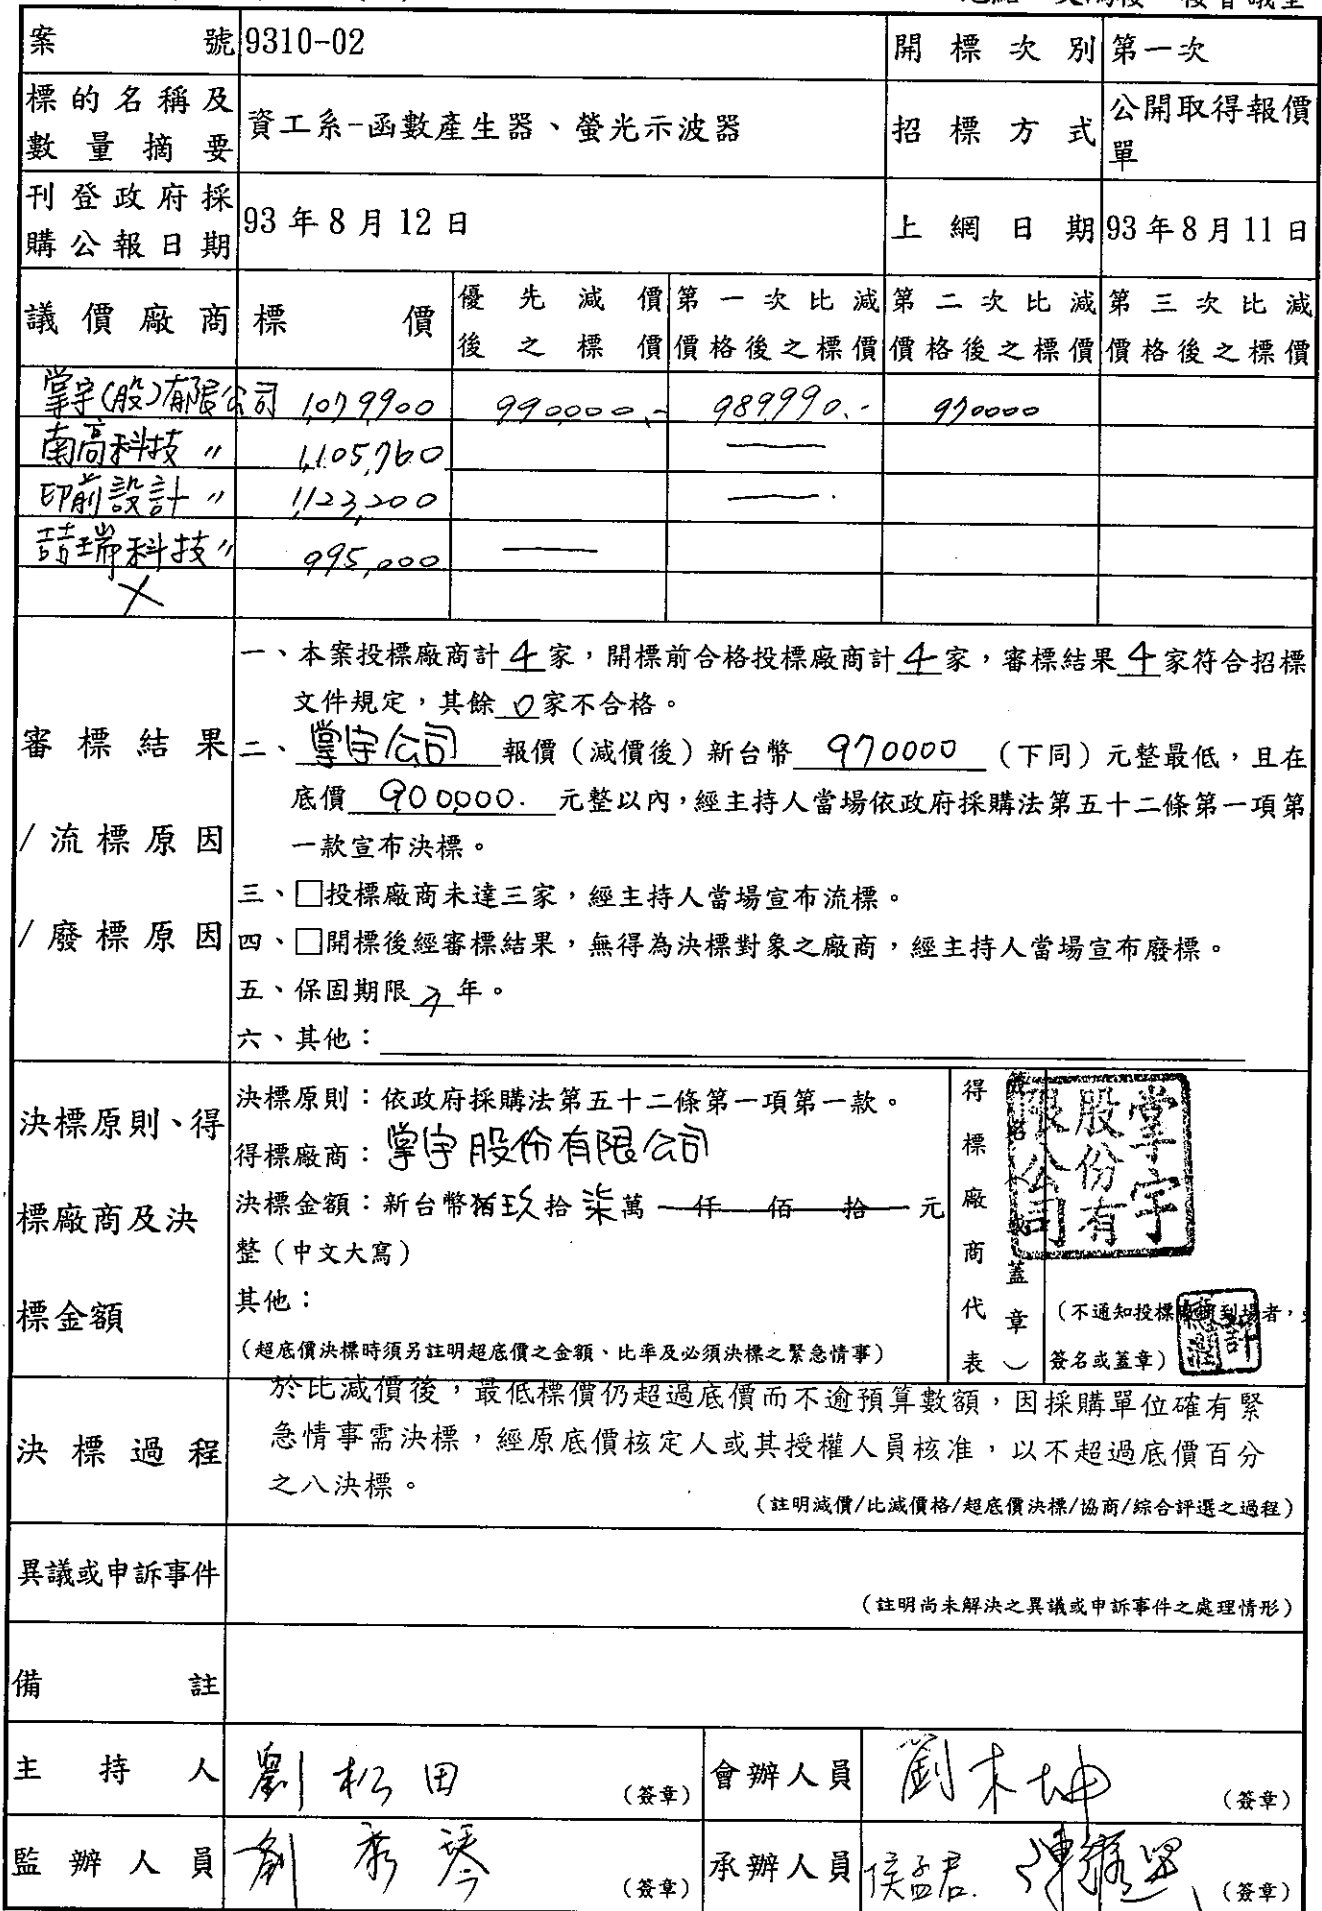 案號 9310-02 開標次別 第一次
標的名稱及
數量摘要
資工系-函數產生器、螢光示波器
招標方式
公開取得報價
單
刊登政府採
購公報日期
93年8月12日
上網日期 93年8月11日
議價廠商 標價
優先減價
後之標價
第一次比減
價格後之標價
第二次比減
價格後之標價
第三次比減
價格後之標價
掌宇(股)有限公司 1,079900 990,000.- 989990.- 970000
南高科技 〃 1,105,760 —
印前設計 〃 1,123,200 —
喆瑞科技 〃 995,000 —
審標結果
/流標原因
/廢標原因
一、本案投標廠商計4家,開標前合格投標廠商計4家,審標結果4家符合招標
文件規定,其餘0家不合格。
二、掌宇公司 報價(減價後)新台幣 970000 (下同)元整最低,且在
底價 900,000. 元整以內,經主持人當場依政府採購法第五十二條第一項第
一款宣布決標。
三、□投標廠商未達三家,經主持人當場宣布流標。
四、□開標後經審標結果,無得為決標對象之廠商,經主持人當場宣布廢標。
五、保固期限 年。
六、其他:
決標原則、得
標廠商及決
標金額
決標原則:依政府採購法第五十二條第一項第一款。
得標廠商:掌宇股份有限公司
決標金額:新台幣 玖拾柒萬 仟 佰 拾 元
整(中文大寫)
其他:
(超底價決標時須另註明超底價之金額、比率及必須決標之緊急情事)
得標廠商代表
蓋章)
掌宇
股份有
限公司
(不通知投標 到場者,
簽名或蓋章)
決標過程
於比減價後,最低標價仍超過底價而不逾預算數額,因採購單位確有緊
急情事需決標,經原底價核定人或其授權人員核准,以不超過底價百分
之八決標。
(註明減價/比減價格/超底價決標/協商/綜合評選之過程)
異議或申訴事件
(註明尚未解決之異議或申訴事件之處理情形)
備註
主持人 劉松田 (簽章) 會辦人員 劉木坤 (簽章)
監辦人員 劉秀琴 (簽章) 承辦人員 侯孟君. (簽章)